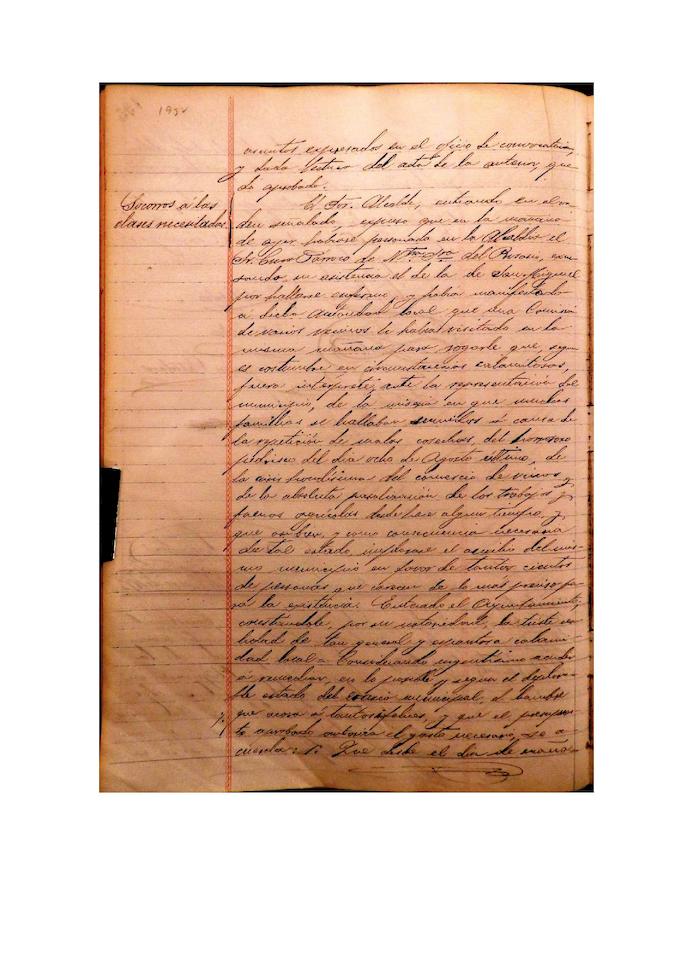 1922
asuntos expresados en el oficio de convocatoria,
y dada lectura del acta de la anterior, que-
dó aprobada.
Socorros á las
clases necesitadas
El Sor. Alcalde, entrando en el or-
den señalado, expuso que en la mañana
de ayer habíase personado en la Alcaldía el
Sr. Cura Párroco de Ntra. Sra. del Rosario, excu-
sando su asistencia el de la de San Miguel
por hallarse enfermo, y había manifestado
a dicha Autoridad local que una Comisión
de varios vecinos le había visitado en la
misma mañana para rogarle que, segun
es costumbre en circunstancias calamitosas,
fuera intérprete, ante la representación del
municipio, de la miseria en que muchas
familias se hallaban sumidas á causa de
la repetición de malas cosechas, del horroroso
pedrisco del dia ocho de Agosto último, de
la crisis hondísima del comercio de vinos y
de la absoluta paralización de los trabajos y
faenas agrícolas desde hace algun tiempo, y
que tambien, y como consecuencia necesaria
de tal estado, implorase el auxilio del mis-
mo municipio en favor de tantos cientos
de personas que carecen de lo más preciso pa-
ra la existencia. Enterado el Ayuntamiento,
constándole, por su notoriedad, la triste rea-
lidad de tan general y espantosa calami-
dad local = Considerando urgentísimo acudir
á remediar, en lo posible y segun el deplora-
ble estado del erario municipal, el hambre
que acosa á tantos infelices, y que el presupues-
to aprobado autoriza el gasto necesario, se a-
cuerda: 1º Que desde el dia de maña-